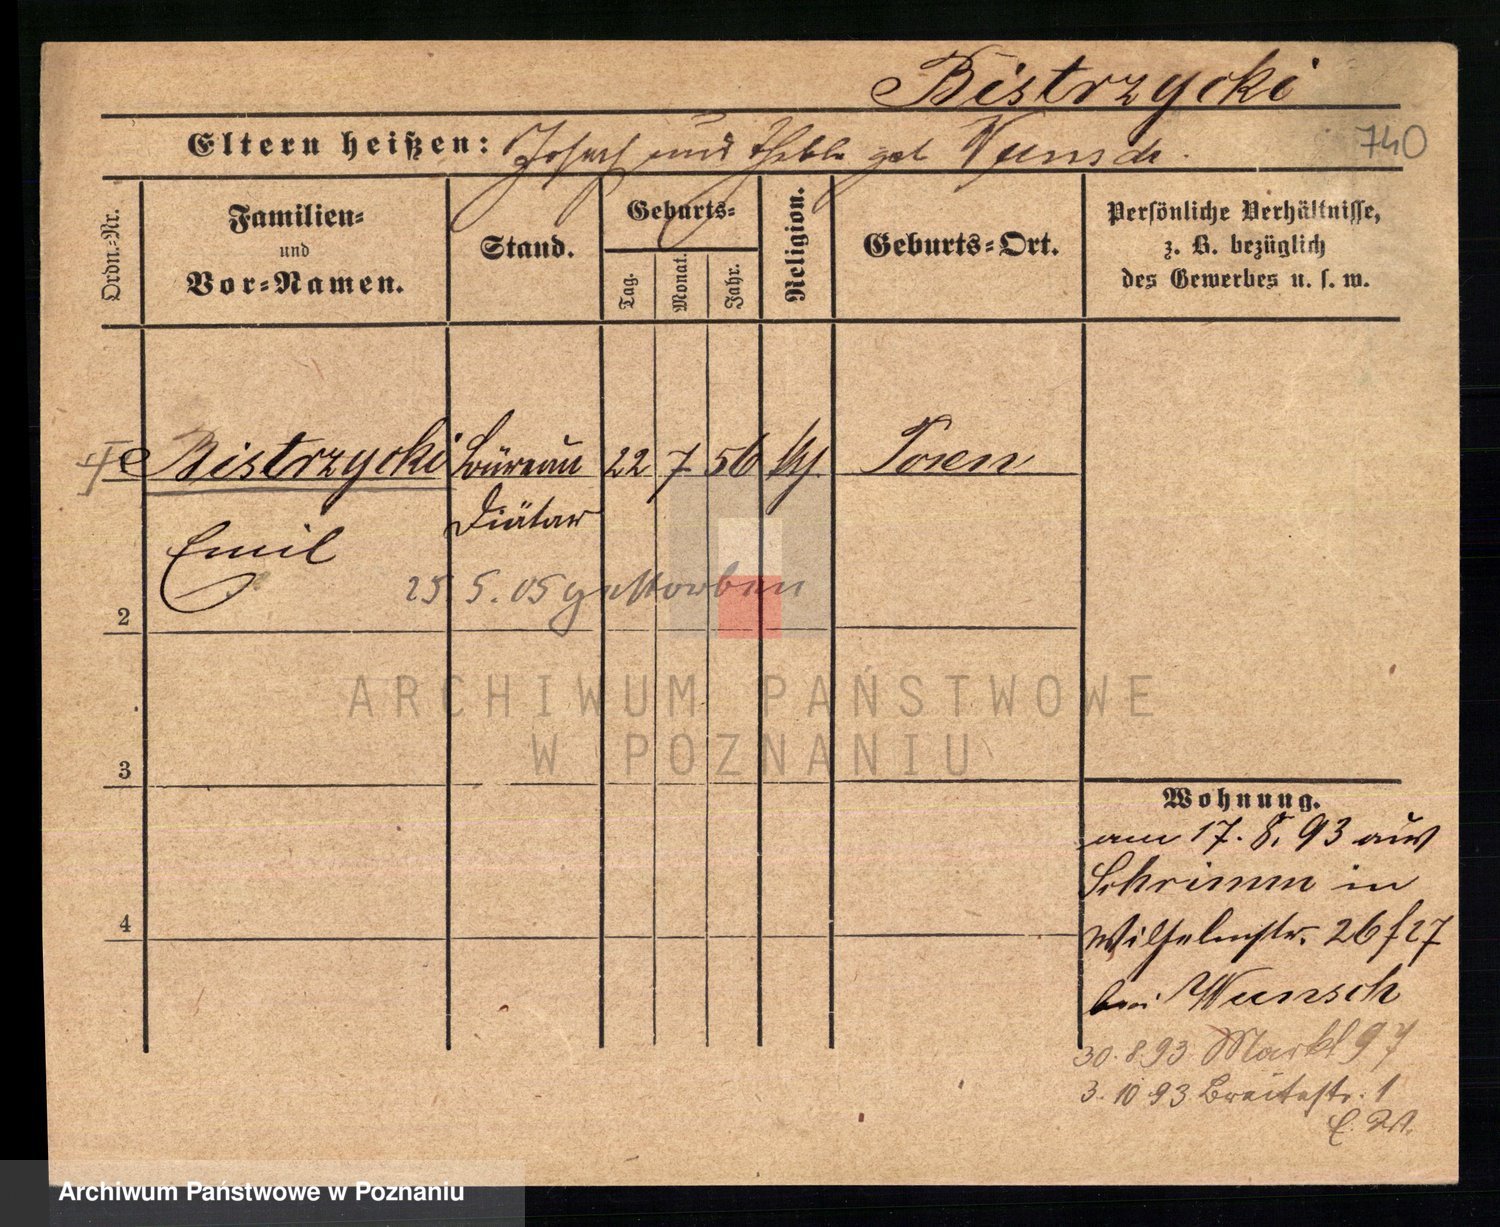 Bistrzycki
740
Eltern heißen: Joseph und Thekla geb. Wunsch.
Ordn.-Nr.
Familien-
und
Vor-Namen.
Stand.
Geburts-
Tag.
Monat.
Jahr.
Religion.
Geburts-Ort.
Persönliche Verhältnisse,
z. B. bezüglich
des Gewerbes u. s. w.
Bistrzycki Büreau 22 7 56 Posen
Diätar
Emil
25 5. 05 gestorben
2
3
4
ARCHIWUM PAŃSTWOWE
W POZNANIU
Wohnung.
am 17. 8. 93 aus
Schrimm in
Wilhelmstr. 26 f 27
bei Wunsch
30. 8 93 Markt 97
3. 10 93 Breitestr. 1
Archiwum Państwowe w Poznaniu